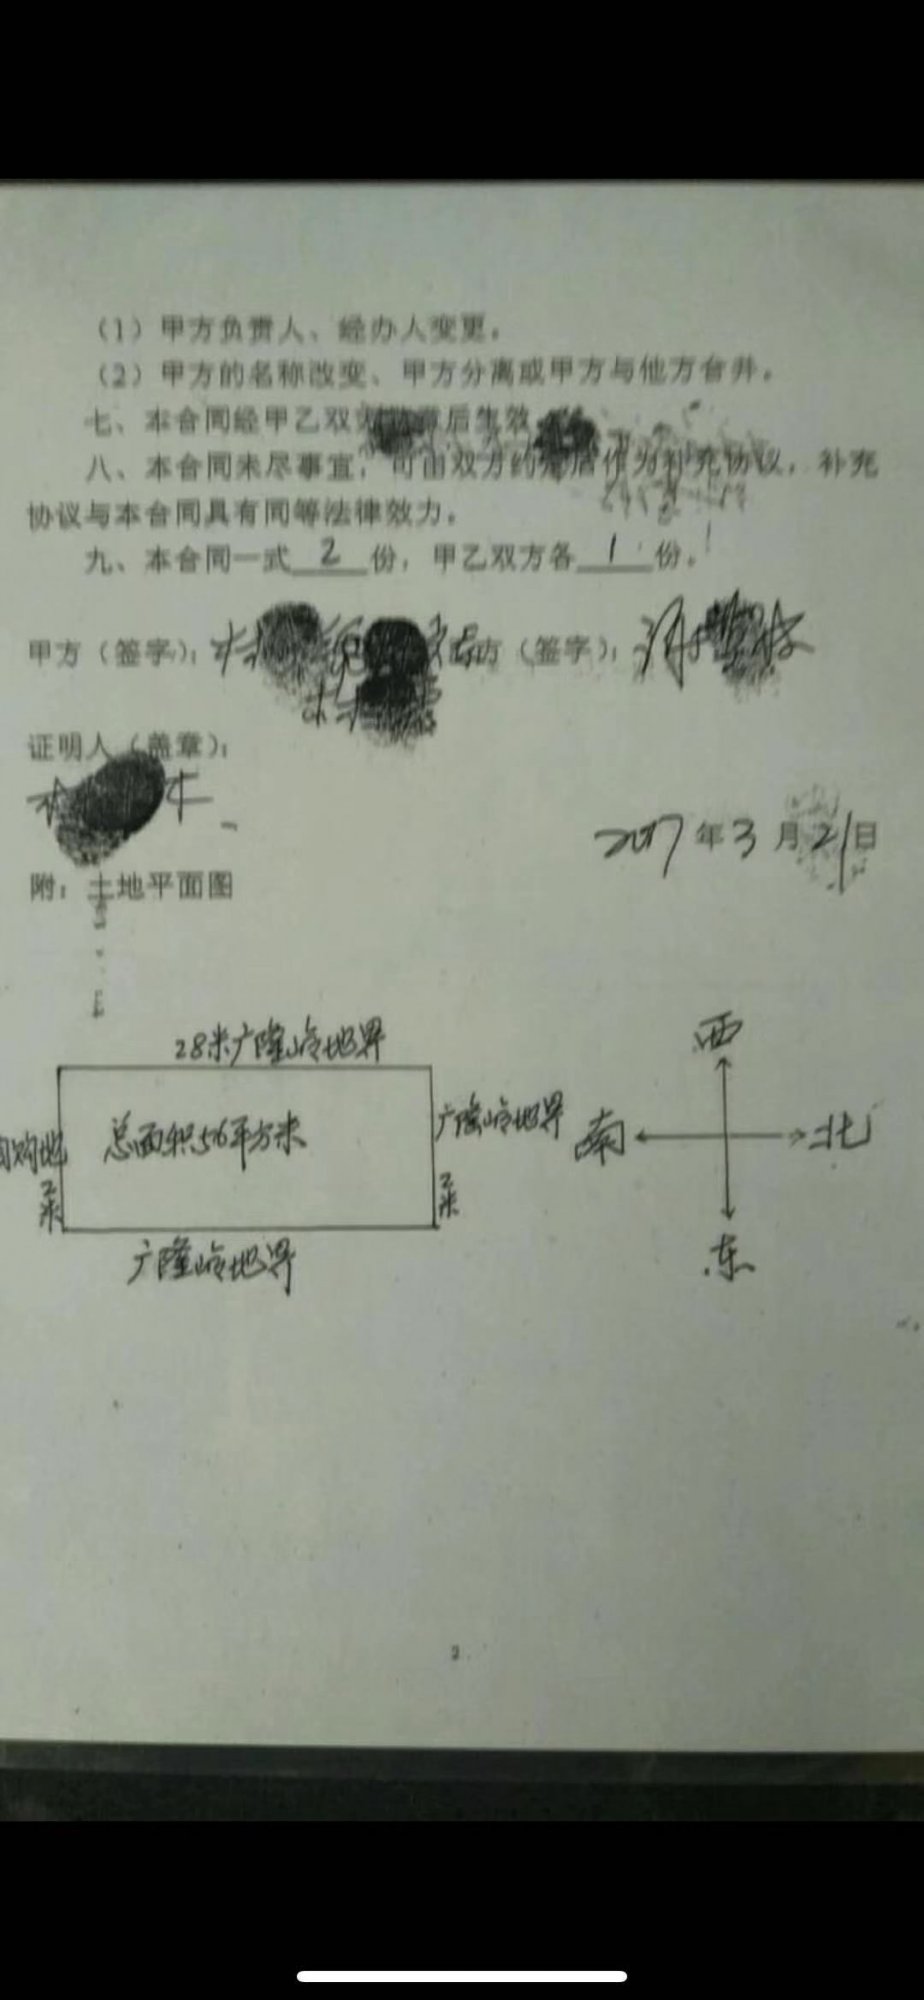 （1）甲方负责人、经办人变更。
（2）甲方的名称改变、甲方分离或甲方与他方合并。
七、本合同经甲乙双方 章后生效
八、本合同未尽事宜，可由双方约定后作为补充协议，补充
协议与本合同具有同等法律效力。
九、本合同一式 2 份，甲乙双方各 1 份。
甲方（签字）： 方（签字）：
证明人（盖章）：
2017年3月21日
附：土地平面图
28米广隆岭地界
西
总面积56平方米
广隆岭地界
南
北
购地
2米
2米
广隆岭地界
东
2